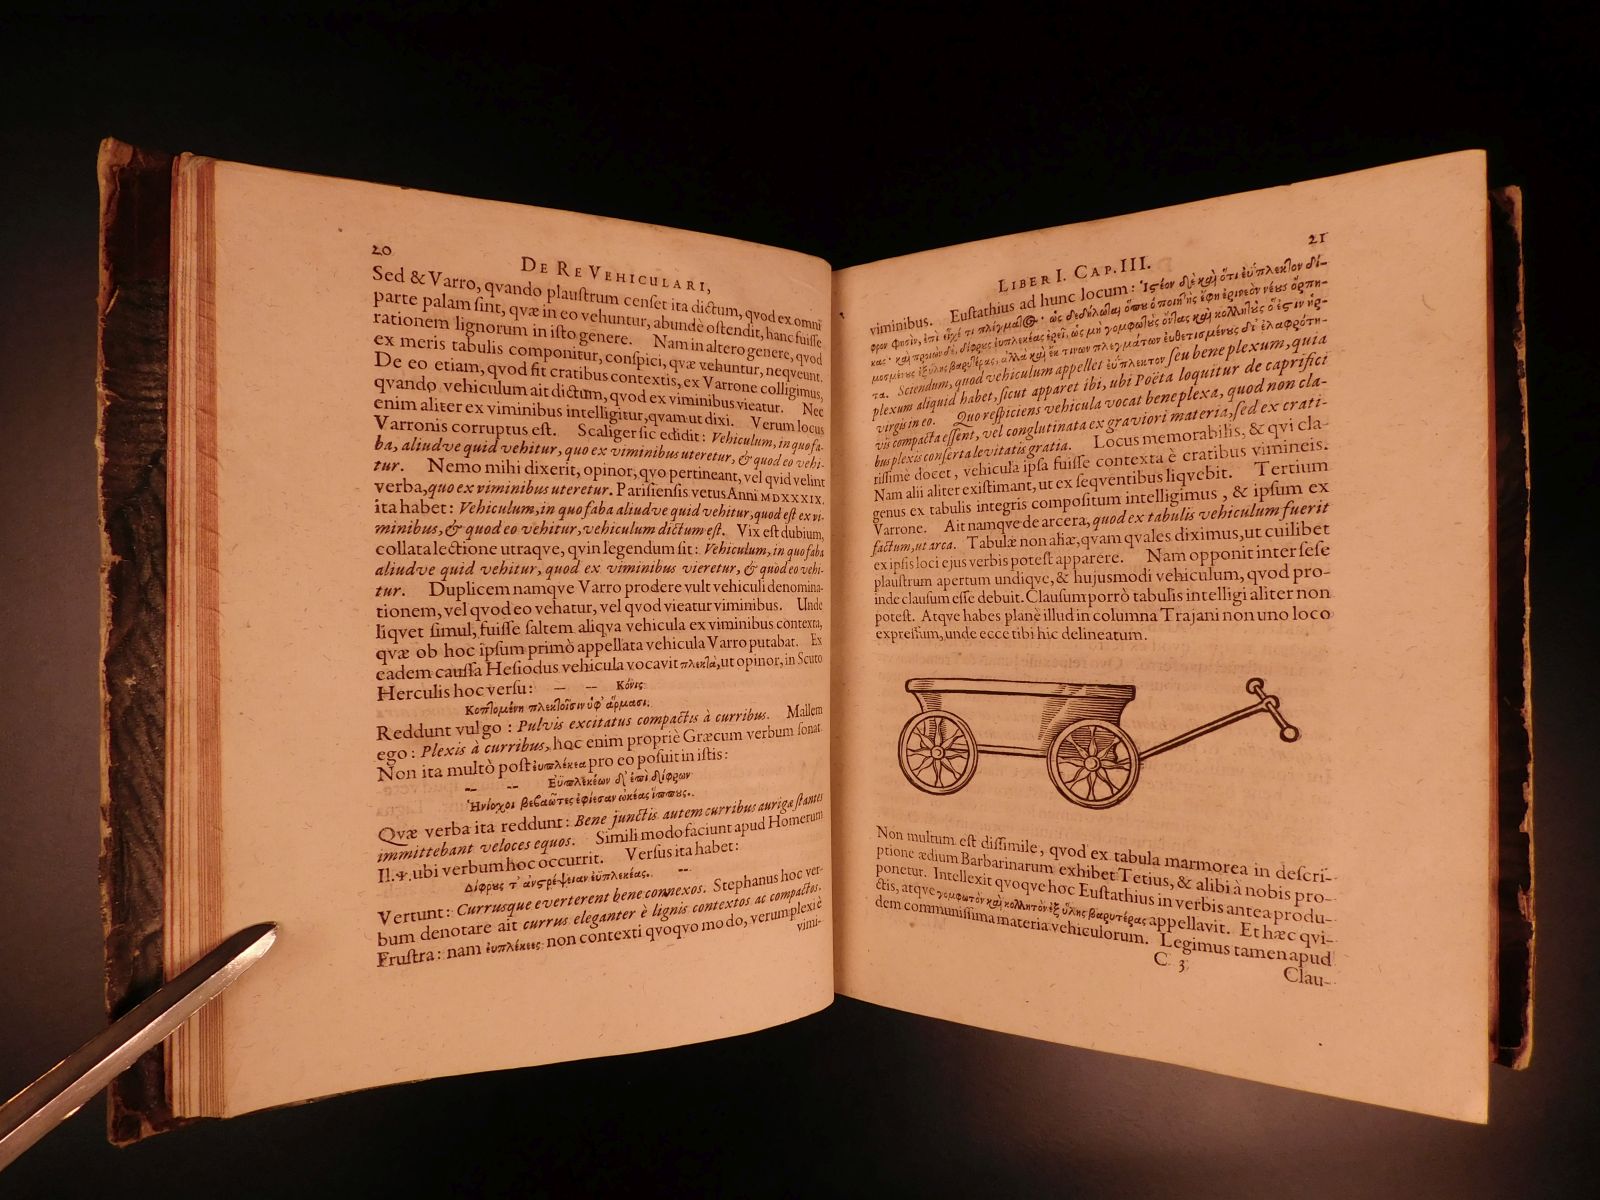 20
DE RE VEHICULARI,
Sed & Varro, qvando plaustrum censet ita dictum, qvod ex omni
parte palam sint, qvæ in eo vehuntur, abundè ostendit, hanc fuisse
rationem lignorum in isto genere. Nam in altero genere, qvod
ex meris tabulis componitur, conspici, qvæ vehuntur, neqveunt.
De eo etiam, qvod fit cratibus contextis, ex Varrone colligimus,
qvando vehiculum ait dictum, qvod ex viminibus vieatur. Nec
enim aliter ex viminibus intelligitur, qvam ut dixi. Verum locus
Varronis corruptus est. Scaliger sic edidit: Vehiculum, in quo fa-
ba, aliudve quid vehitur, quo ex viminibus uteretur, & quod eo vehi-
tur. Nemo mihi dixerit, opinor, qvo pertineant, vel qvid velint
verba, quo ex viminibus uteretur. Parisiensis vetus Anni MDXXXIX.
ita habet: Vehiculum, in quo faba aliudve quid vehitur, quod est ex vi-
minibus, & quod eo vehitur, vehiculum dictum est. Vix est dubium,
collata lectione utraqve, qvin legendum sit: Vehiculum, in quo faba
aliudve quid vehitur, quod ex viminibus vieretur, & quod eo vehi-
tur. Duplicem namqve Varro prodere vult vehiculi denomina-
tionem, vel qvod eo vehatur, vel qvod vieatur viminibus. Unde
liqvet simul, fuisse saltem aliqva vehicula ex viminibus contexta,
qvæ ob hoc ipsum primò appellata vehicula Varro putabat. Ex
eadem caussa Hesiodus vehicula vocavit πλεκτὰ, ut opinor, in Scuto
Herculis hoc versu: – – Κόνις
Κοπτομένη πλεκτοῖσιν ὑφ' ἅρμασι.
Reddunt vulgo: Pulvis excitatus compactis à curribus. Mallem
ego: Plexis à curribus, hoc enim propriè Græcum verbum sonat.
Non ita multò post εὐπλέκεα pro eo posuit in istis:
– – Εὐπλεκέων δ' ἐπὶ δίφρων
Ἡνίοχοι βεβαῶτες ἐφίεσαν ὠκέας ἵππους.
Qvæ verba ita reddunt: Bene junctis autem curribus aurigæ stantes
immittebant veloces equos. Simili modo faciunt apud Homerum
Il. Ψ. ubi verbum hoc occurrit. Versus ita habet:
Δίφρους τ' ἀνστρέψειαν ἐϋπλεκέας. --
Vertunt: Currusque everterent bene connexos. Stephanus hoc ver-
bum denotare ait currus eleganter è lignis contextos ac compactos.
Frustra: nam εὐπλέκεες non contexti qvoqvo modo, verum plexi è
vimi-
21
LIBER I. CAP. III.
viminibus. Eustathius ad hunc locum: Ἰστέον δὲ καὶ ὅτι εὔπλεκτον δί-
φρον φησὶν, ἐπεὶ εἶχέ τι πλέγματος, ὡς δεδήλωται ὅπου ὁ ποιητὴς ἔφη ἐρινεὸν νέους ὄρπη-
κας·
τα. Sciendum, quod vehiculum appellet εὔπλεκτον seu bene plexum, quia
plexum aliquid habet, sicut apparet ibi, ubi Poëta loquitur de caprifici
virgis in eo. Quo respiciens vehicula vocat bene plexa, quod non cla-
vis compacta essent, vel conglutinata ex graviori materia, sed ex crati-
bus plexis conserta levitatis gratia. Locus memorabilis, & qvi cla-
rissimè docet, vehicula ipsa fuisse contexta è cratibus vimineis.
Nam alii aliter existimant, ut ex seqventibus liqvebit. Tertium
genus ex tabulis integris compositum intelligimus, & ipsum ex
Varrone. Ait namqve de arcera, quod ex tabulis vehiculum fuerit
factum, ut arca. Tabulæ non aliæ, qvam qvales diximus, ut cuilibet
ex ipsis loci ejus verbis potest apparere. Nam opponit inter sese
plaustrum apertum undiqve, & hujusmodi vehiculum, qvod pro-
inde clausum esse debuit. Clausum porrò tabulis intelligi aliter non
potest. Atqve habes planè illud in columna Trajani non uno loco
expressum, unde ecce tibi hic delineatum.
Non multum est dissimile, qvod ex tabula marmorea in descri-
ptione ædium Barbarinarum exhibet Tetius, & alibi à nobis pro-
ponetur. Intellexit qvoqve hoc Eustathius in verbis antea produ-
ctis, atqve γομφωτὸν καὶ κολλητὸν ἐξ ὕλης βαρυτέρας appellavit. Et hæc qvi-
dem communissima materia vehiculorum. Legimus tamen apud
C 3
Clau-